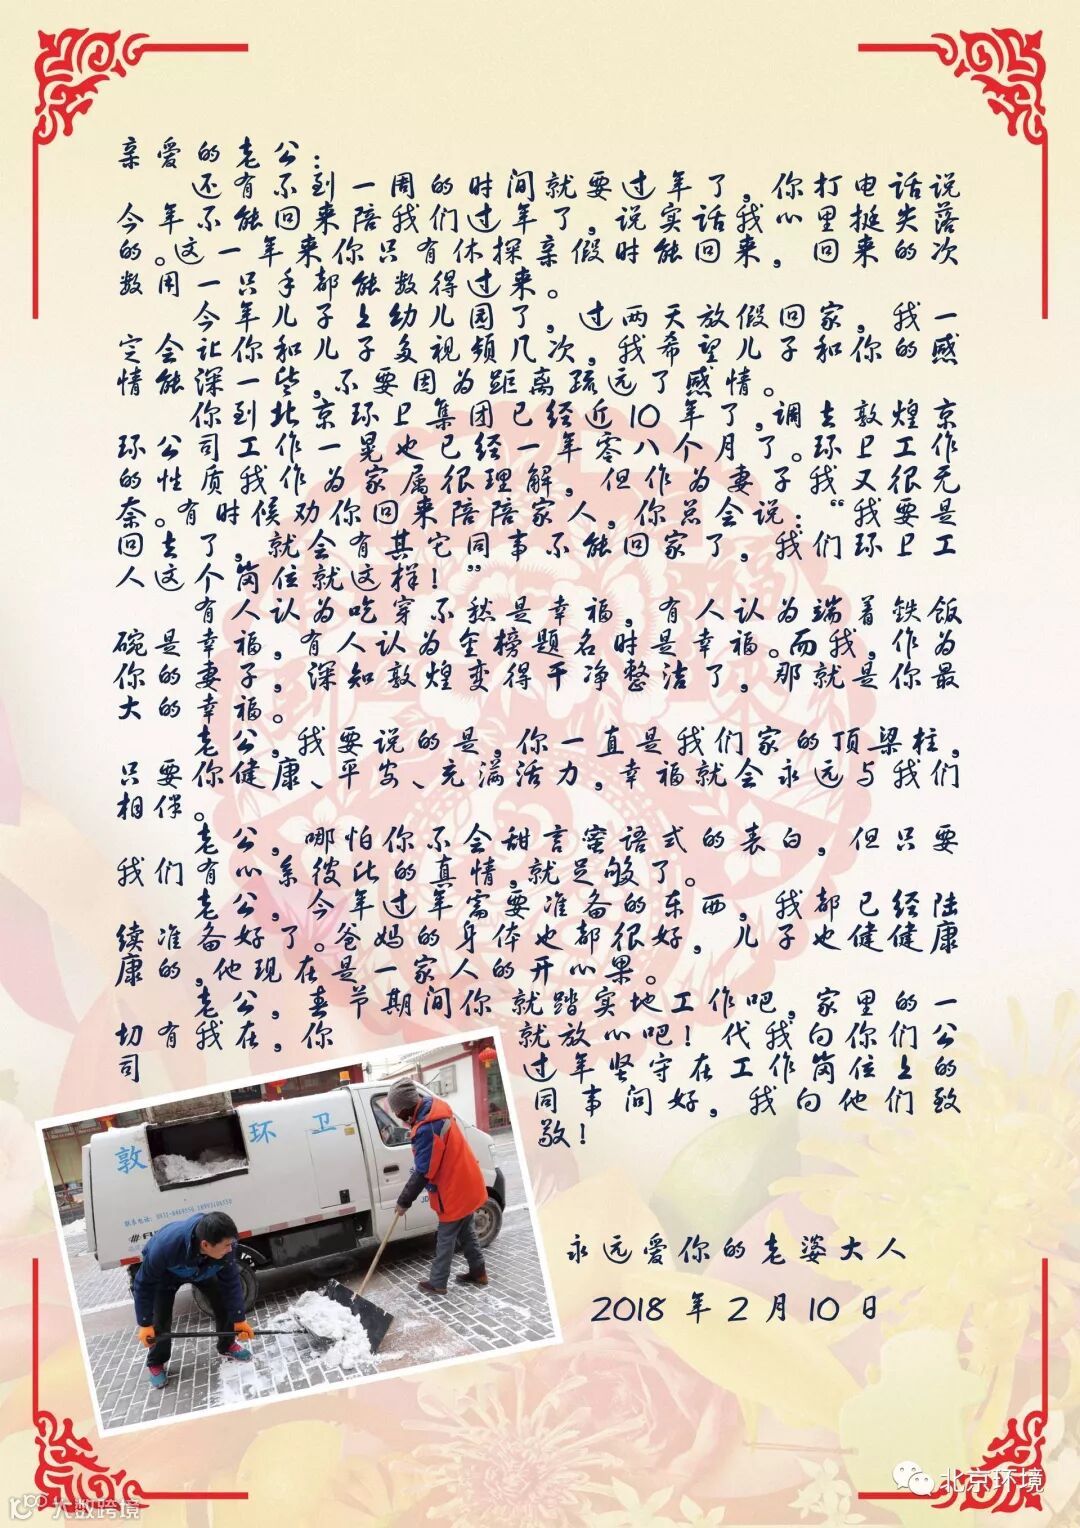 亲爱的老公：
还有不到一周的时间就要过年了，你打电话说
今年不能回来陪我们过年了，说实话我心里挺失落
的。这一年来你只有休探亲假时能回来，回来的次
数用一只手都能数得过来。
今年儿子上幼儿园了，过两天放假回家，我一
定会让你和儿子多视频几次，我希望儿子和你的感
情能深一些，不要因为距离疏远了感情。
你到北京环卫集团已经近10年了，调去敦煌京
环公司工作一晃也已经一年零八个月了。环卫工作
的性质我作为家属很理解，但作为妻子我又很无
奈。有时候劝你回来陪陪家人，你总会说：“我要是
回去了，就会有其它同事不能回家了，我们环卫工
人这个岗位就这样！”
有人认为吃穿不愁是幸福，有人认为端着铁饭
碗是幸福，有人认为金榜题名时是幸福。而我，作为
你的妻子，深知敦煌变得干净整洁了，那就是你最
大的幸福。
老公，我要说的是，你一直是我们家的顶梁柱，
只要你健康、平安、充满活力，幸福就会永远与我们
相伴。
老公，哪怕你不会甜言蜜语式的表白，但只要
我们有心系彼此的真情，就足够了。
老公，今年过年需要准备的东西，我都已经陆
续准备好了。爸妈的身体也都很好，儿子也健健康
康的，他现在是一家人的开心果。
老公，春节期间你就踏实地工作吧，家里的一
切有我在，你就放心吧！代我向你们公
司过年坚守在工作岗位上的
同事问好，我向他们致
敬！
敦 环 卫
永远爱你的老婆大人
2018年2月10日
北京环境
大数跨境